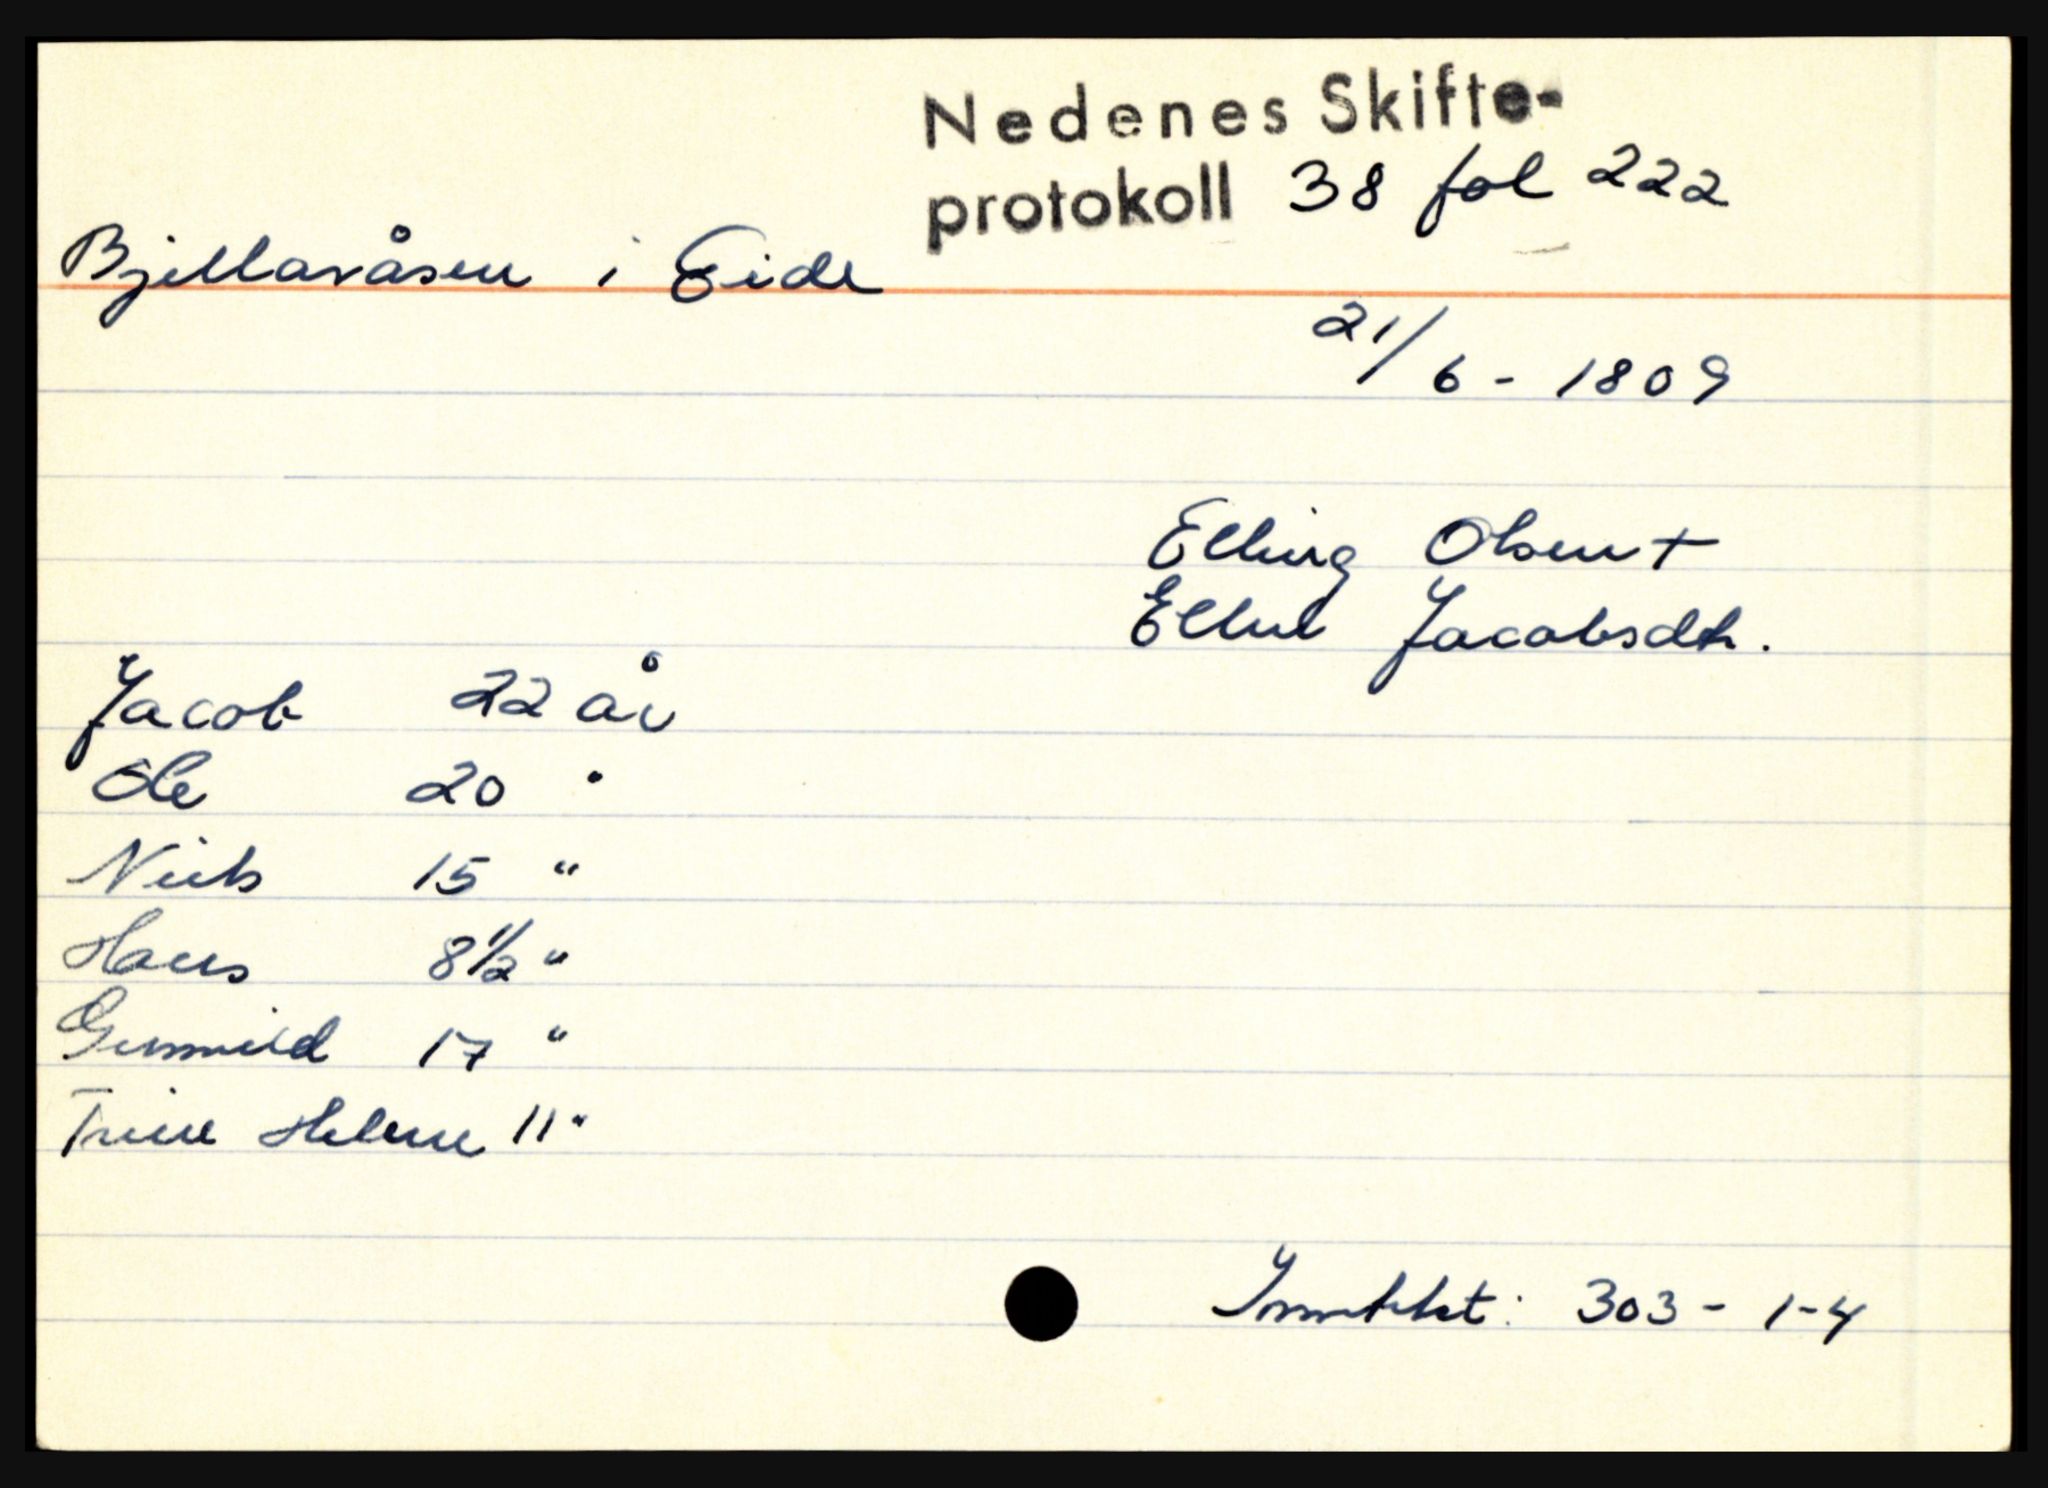 Nedenes Skifte-
protokoll 38 fol 222
Bjellavåsen i Eide
21/6 - 1809
Elling Olsen +
Ellen Jacobsdtr.
Jacob 22 år
Ole 20 "
Niels 15 "
Hans 8 1/2 "
Gunnild 17 "
Trine Helene 11 "
Inntekt: 303 - 1-4